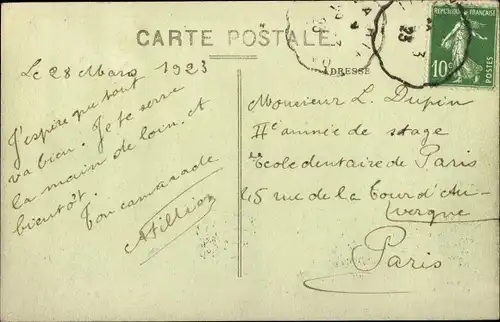 CARTE POSTALE
ADRESSE
RÉPUBLIQUE FRANÇAISE
10c
POSTES
Le 28 Mars 1923
J'espère que tout
va bien. Je te serre
la main de loin, et
bientôt.
Ton camarade
Monsieur L. Dupin
IIe année de stage
Ecole dentaire de Paris
45 rue de la Tour d'Au-
vergne
Paris